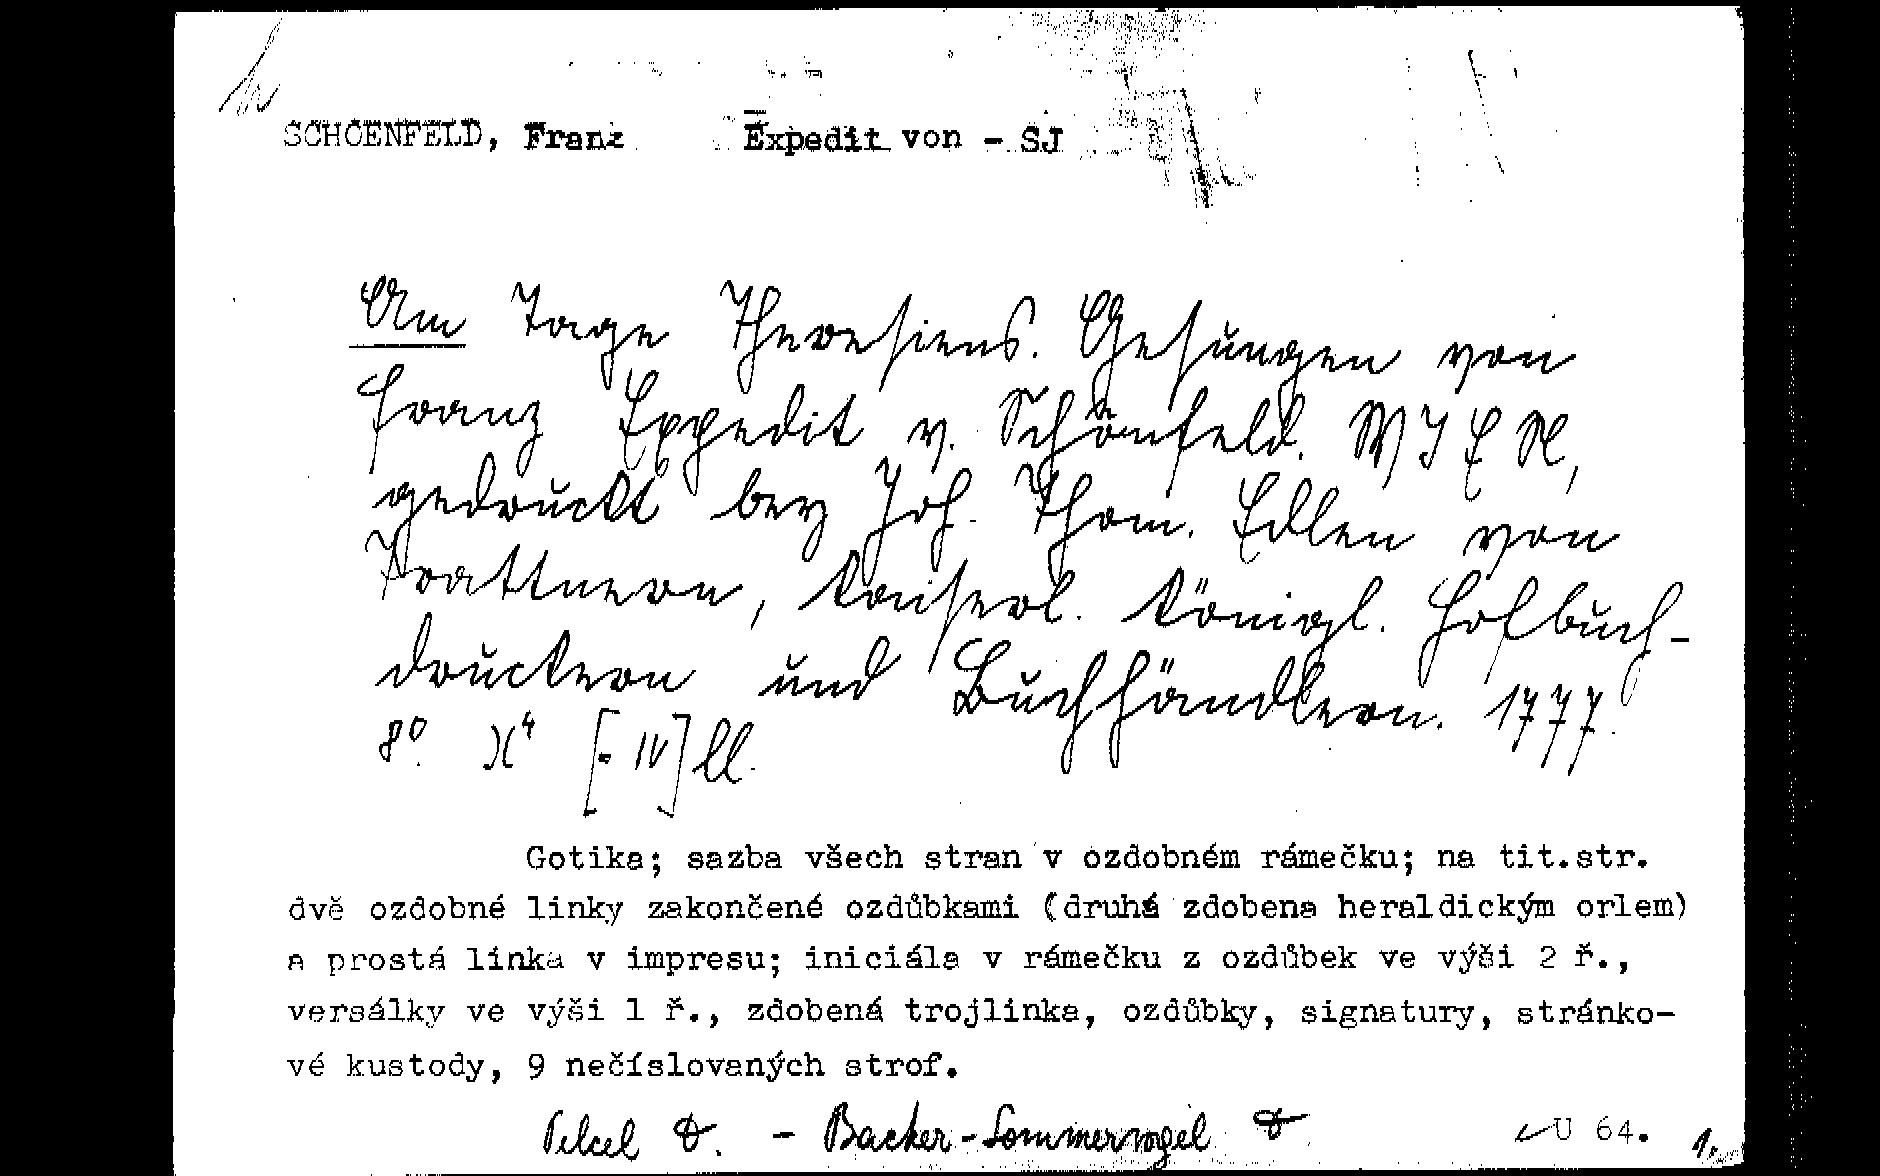 SCHOENFELD, Franz Expedit von - SJ
Am Tage Theresiens. Gesungen von
Franz Expedit v. Schönfeld. WIEN,
gedruckt bey Joh. Thom. Edlen von
Trattnern, kaiserl. königl. Hofbuch-
druckern und Buchhändlern. 1777.
8° )(⁴ [= IV] ll.
Gotika; sazba všech stran v ozdobném rámečku; na tit.str.
dvě ozdobné linky zakončené ozdůbkami (druhá zdobena heraldickým orlem)
a prostá linka v impresu; iniciála v rámečku z ozdůbek ve výši 2 ř.,
versálky ve výši 1 ř., zdobená trojlinka, ozdůbky, signatury, stránko-
vé kustody, 9 nečíslovaných strof.
Pelcel - Backer-Sommervogel
U 64. 1.